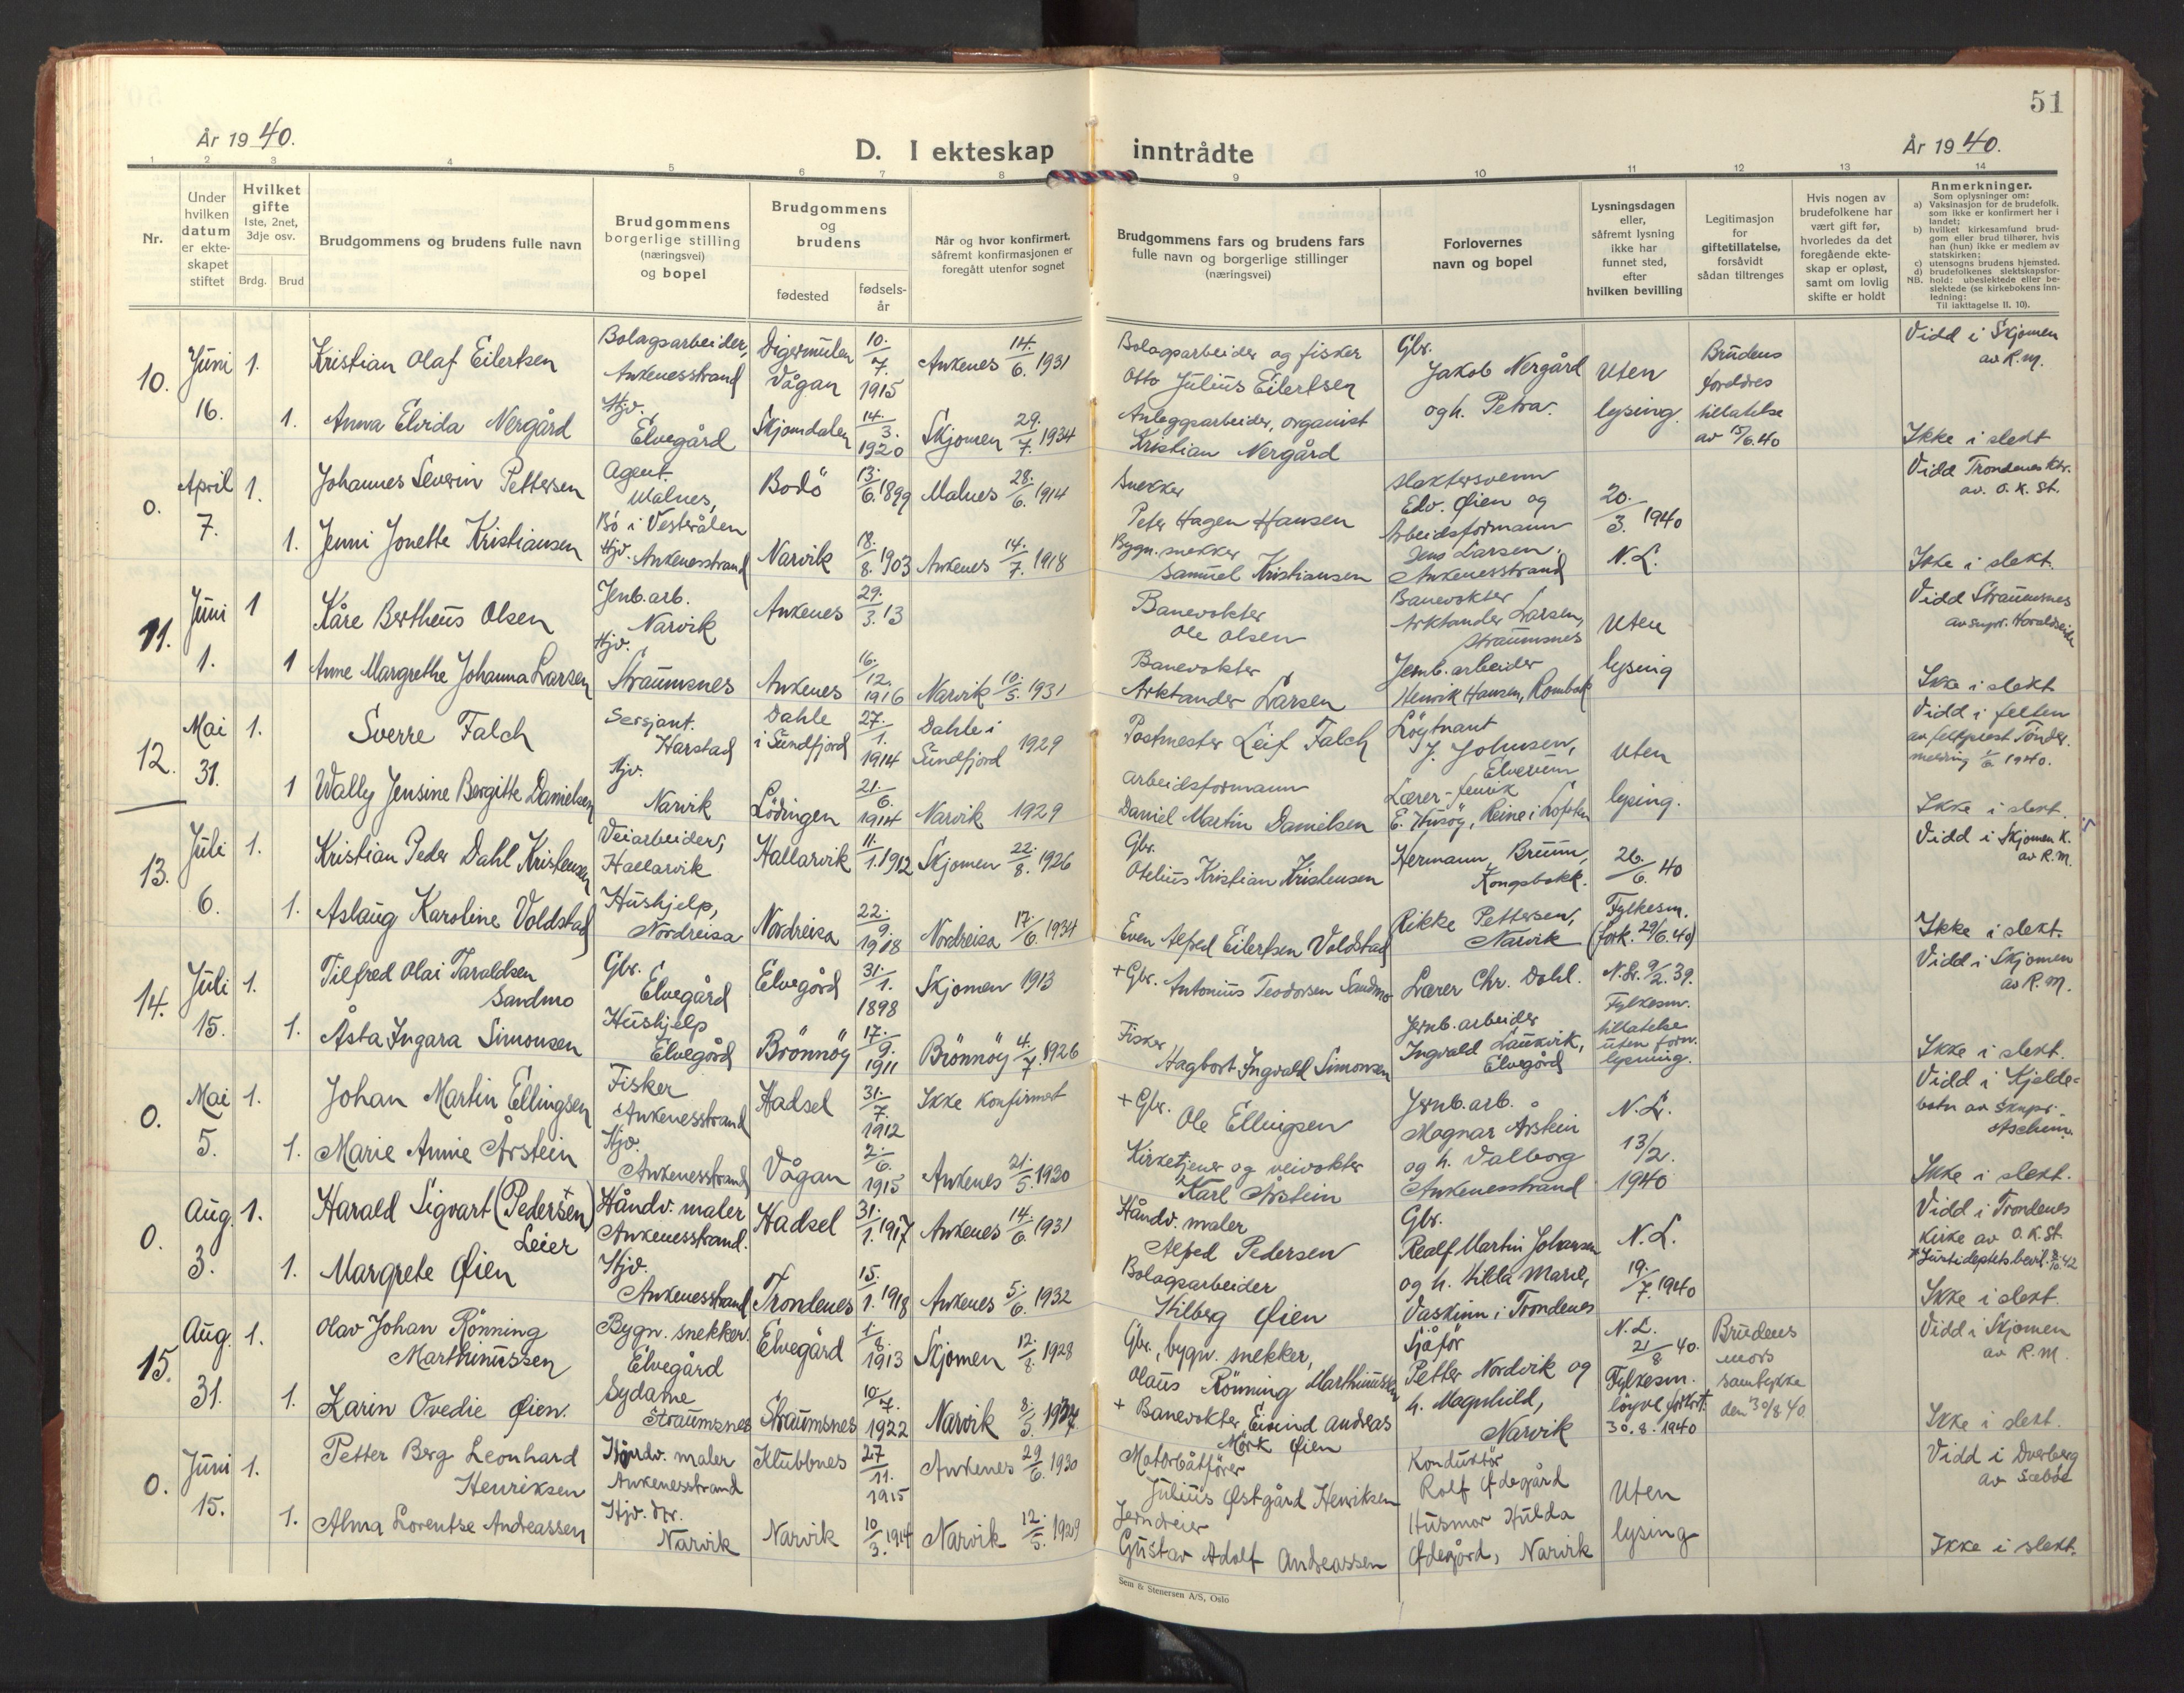 51
År 1940.
D. I ekteskap inntrådte
År 1940.
1 2 3 4 5 6 7 8 9 10 11 12 13 14
Nr.
Under hvilken datum er ekte-skapet stiftet
Hvilket gifte
1ste, 2net, 3dje osv.
Brdg. Brud
Brudgommens og brudens fulle navn
Brudgommens borgerlige stilling (næringsvei) og bopel
Brudgommens og brudens
fødested
fødsels-år
Når og hvor konfirmert, såfremt konfirmasjonen er foregått utenfor sognet
Brudgommens fars og brudens fars fulle navn og borgerlige stillinger (næringsvei)
Forlovernes navn og bopel
Lysningsdagen eller, såfremt lysning ikke har funnet sted, efter hvilken bevilling
Legitimasjon for giftetillatelse, forsåvidt sådan tiltrenges
Hvis nogen av brudefolkene har vært gift før, hvorledes da det foregående ekte-skap er opløst, samt om lovlig skifte er holdt
Anmerkninger.
Som oplysninger om:
a) Vaksinasjon for de brudefolk, som ikke er konfirmert her i landet;
b) hvilket kirkesamfund brud-gom eller brud tilhører, hvis han (hun) ikke er medlem av statskirken;
c) utensogns brudens hjemsted.
d) brudefolkenes slektskapsfor-hold: ubeslektede eller be-slektede (se kirkebokens inn-ledning:
NB. Til iakttagelse II. 10).
10. Juni 16. 1. Kristian Olaf Eilertsen Bolagsarbeider, Ankenesstrand Digermulen Vågan 10./7. 1915 Ankenes 14./6. 1931 Bolagsarbeider og fisker Otto Julius Eilertsen Gbr. Jakob Nergård og h. Petra. Uten lysing. Brudens forddres tillatelse av 15/6.40 Vidd i Skjomen av R.M.
1. Anna Elvida Nergård Hjv. Elvegård Skjomdalen 14./3. 1920 Skjomen 29./7. 1934 Anleggsarbeider, organist Kristian Nergård Ikke i slekt
0. April 7. 1. Johannes Severin Pettersen Agent. Malnes, Bö i Vesterålen Bodö 13./6. 1899 Malnes 28./6. 1914 Snekker Peter Hagen Hansen Slaktersvenn Edv. Øien og Arbeidsformann Jens Larsen, Ankenesstrand 20./3. 1940 N.L. Vidd Trondenes ktr. av. O.K.St.
1. Jenni Jonette Kristiansen Hjv. Ankenesstrand Narvik 18./8. 1903 Ankenes 14./7. 1918 Bygn. snekker Samuel Kristiansen Ikke i slekt.
11. Juni 1. 1 Kåre Bertheus Olsen Jenb.arb. Narvik Ankenes 29./3. 13 Banevokter Ole Olsen Banevokter Arktander Larsen, Straumsnes Uten lysing Vidd Straumsnes av sogpr. Haraldseide
1 Anne Margrethe Johanna Larsen Hjv. Straumsnes Ankenes 16./12. 1916 Narvik 10./5. 1931 Banevokter Arktander Larsen Jernb.arbeider Henrik Hansen, Rombak Ikke i slekt
12. Mai 31. 1. Sverre Falch Sersjant. Harstad Dahle i Sundfjord 27./1. 1914 Dahle i Sundfjord 1929 Postmester Leif Falch Löytnant J. Johnsen, Elverum Uten lysing. Vidd i felten av feltprest Tönder. melding 1/6 1940.
1 Wally Jensine Bergitte Danielsen Hjv. Narvik Lödingen 21./6. 1914 Narvik 1929 Arbeidsformann Daniel Martin Danielsen Lærer-fenrik E. Husöy, Reine i Lofoten Ikke i slekt.
13. Juli 6. 1. Kristian Peder Dahl Kristensen Veiarbeider, Hallarvik Hallarvik 11./1. 1912 Skjomen 22./8. 1926 Gbr. Otelius Kristian Kristensen Hermann Bruun, Kongsbakk. 26./6. 40 Fylkesm. (fork. 29/6.40) Vidd i Skjomen K. av R.M.
1. Aslaug Karoline Voldstad Hushjelp, Nordreisa Nordreisa 22./9. 1918 Nordreisa 17./6. 1934 Even Alfred Eilertsen Voldstad Rikke Pettersen, Narvik Ikke i slekt.
14. Juli 15. 1. Tilfred Olai Taraldsen Sandmo Gbr. Elvegård Elvegård 31./1. 1898 Skjomen 1913 +Gbr. Antonius Teodorsen Sandmo Lærer Chr. Dahl. N.Lr. 9/2. 39. Fylkesm. tillatelse uten forn. lysning. Vidd i Skjomen av R.M.
1. Åsta Ingara Simonsen Hushjelp Elvegård Brönnöy 17./9. 1911 Brönnöy 4./7. 1926 Fisker Hagbart Ingvald Simonsen Jernb.arbeider Ingvald Laukvik, Elvegård Ikke i slekt.
0. Mai 5. 1. Johan Martin Ellingsen Fisker Ankenesstrand Hadsel 31./7. 1912 Ikke konfirmet +Gbr. Ole Ellingsen Jernb.arb. Magnar Årstein og h. Valborg Ankenesstrand N.L. 13/2. 1940 Vidd i Kjelde-botn av Sknpr. Aschem.
1. Marie Annie Årstein Hjv. Ankenesstrand Vågan 2./6. 1915 Ankenes 21./5. 1930 Kirketjener og veivokter Karl Årstein Ikke i slekt.
0. Aug. 3. 1. Harald Sigvart (Pedersen) Leier Håndv. maler Ankenesstrand. Hadsel 31./1. 1917 Ankenes 14./6. 1931 Håndv. maler Alfred Pedersen Gbr. Realf Martin Johansen og h. Hilda Marie, Vaskinn i Trondenes N.L. 19./7. 1940 Vidd i Trondenes Kirke av O.K.St.
1. Margrete Øien Hjv. Ankenesstrand Trondenes 15./1. 1918 Ankenes 5./6. 1932 Bolagsarbeider Hilberg Øien Ikke i slekt.
15. Aug. 31. 1. Olav Johan Rönning Marthinussen Bygn. snekker. Elvegård Elvegård 1/8. 1913 Skjomen 12./8. 1928 Gbr., bygn. snekker, Olaus Rönning Marthinussen Sjåför Petter Nordvik og h. Magnhild, Narvik N.L. 21/8 40. Fylkesm. löyve forkort. 30.8.1940 Brudens mors samtykke den 30/8 40. Vidd i Skjomen av R.M.
1. Karin Ovedie Øien. Sydame Straumsnes Straumsnes 10./7. 1922 Narvik 8./5. 1937. + Banevokter Eivind Andreas Mörk Øien Ikke i slekt.
0. Juni 15. 1. Petter Berg Leonhard Henriksen Håndv. maler Ankenesstrand Klubbnes 27/11. 1915 Ankenes 29/6. 1930 Motorbåtförer Julius Østgård Henriksen Konduktör Rolf Ødegård Husmor Hulda Ødegård, Narvik Uten lysing Vidd i Dverberg av Sæböe
1. Alma Lorentse Andreassen Hjv. dtr. Narvik Narvik 10/3. 1914 Narvik 12./5. 1929 Jerndreier Gustav Adolf Andreassen Ikke i slekt.
Sem & Stenersen A/S, Oslo